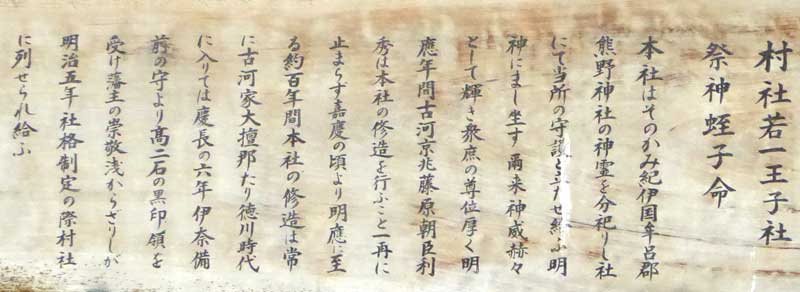 村社若一王子社
祭神蛭子命
本社はそのかみ紀伊国牟呂郡
熊野神社の神霊を分祀りし社
にて当所の守護にたゝせ給ふ明
神にまし坐す 爾来神威赫々
として輝き衆庶の尊位厚く明
應年間古河京兆藤原朝臣利
秀は本社の修造を行ぶこと一再に
止まらず嘉慶の頃より明應に至
る約百年間本社の修造は常
に古河家大檀那たり徳川時代
に入りては慶長の六年伊奈備
前の守より高二石の黒印領を
受け藩主の崇敬浅からざりしが
明治五年社格制定の際村社
に列せられ給ふ